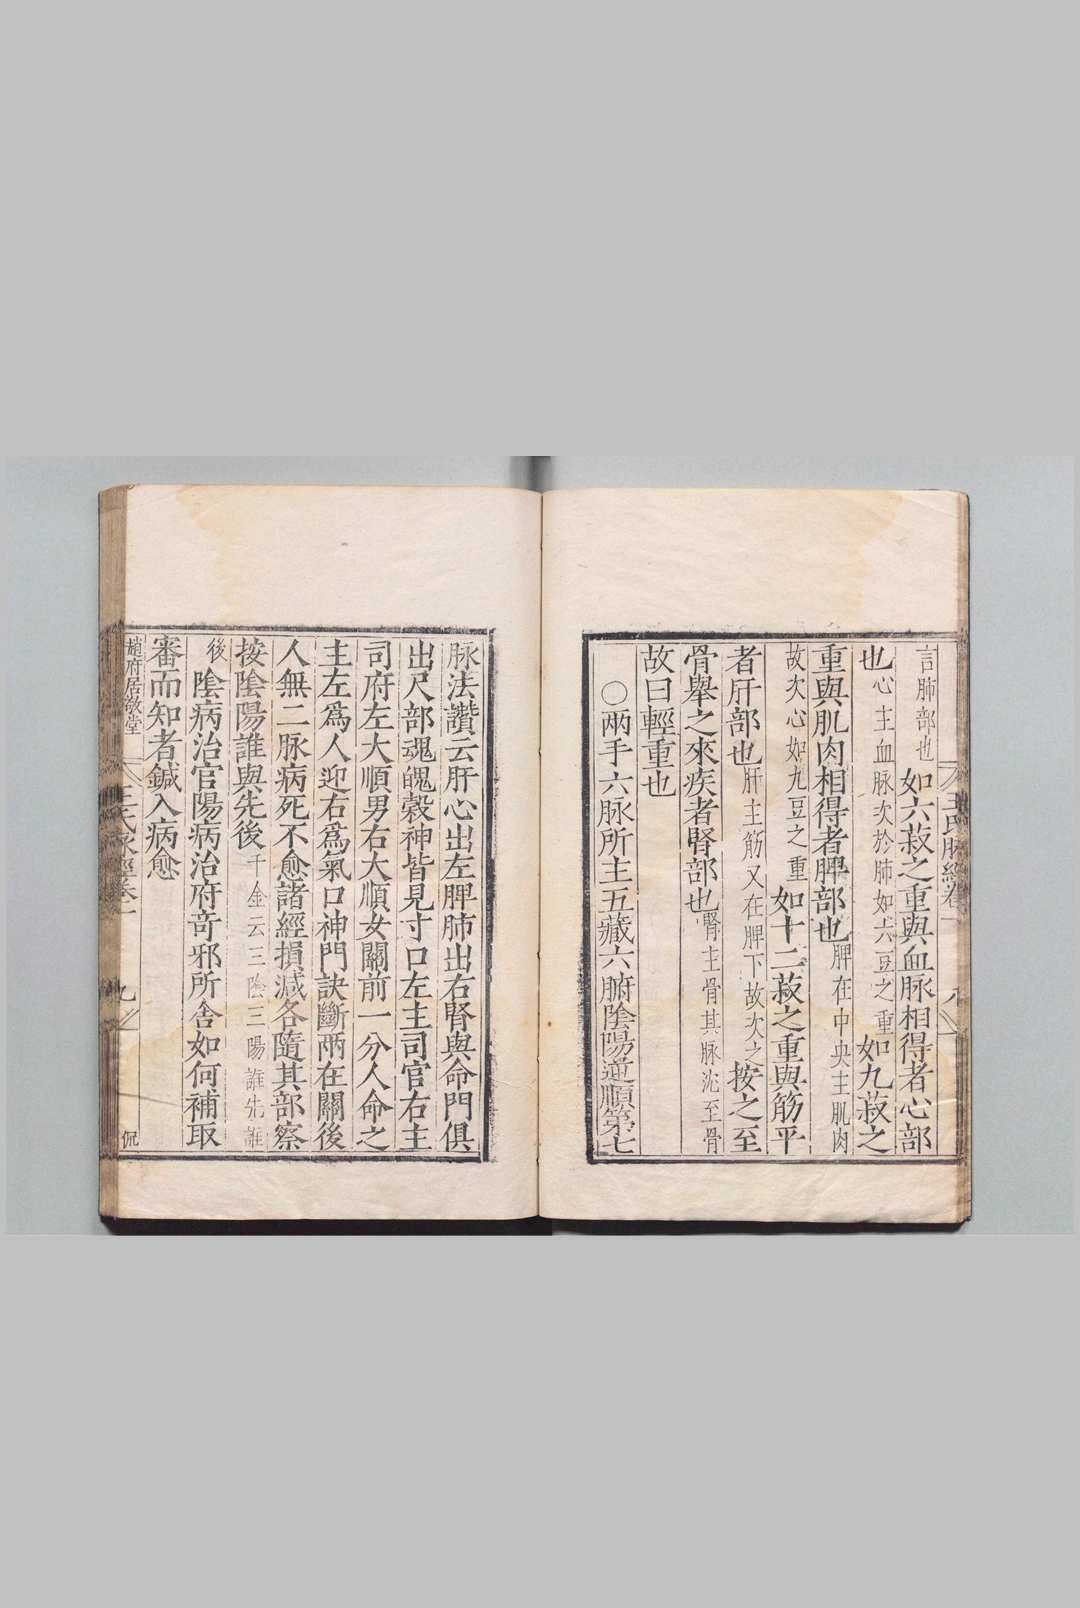 言肺部也如六菽之重與血脉相得者心部
也心主血脉次於肺如六豆之重如九菽之
重與肌肉相得者脾部也脾在中央主肌肉
故次心如九豆之重如十二菽之重與筋平
者肝部也肝主筋又在脾下故次之按之至
骨舉之來疾者腎部也腎主骨其脉沉至骨
故曰輕重也
○兩手六脉所主五藏六腑陰陽逆順第七
王氏脉經卷一 八
脉法讚云肝心出左脾肺出右腎與命門俱
出尺部魂魄穀神皆見寸口左主司官右主
司府左大順男右大順女關前一分人命之
主左爲人迎右爲氣口神門訣斷兩在關後
人無二脉病死不愈諸經損減各隨其部察
按陰陽誰與先後千金云三陰三陽誰先誰
後陰病治官陽病治府竒邪所舎如何補取
審而知者鍼入病愈
趙府居敬堂 王氏脉經卷一 九 侃